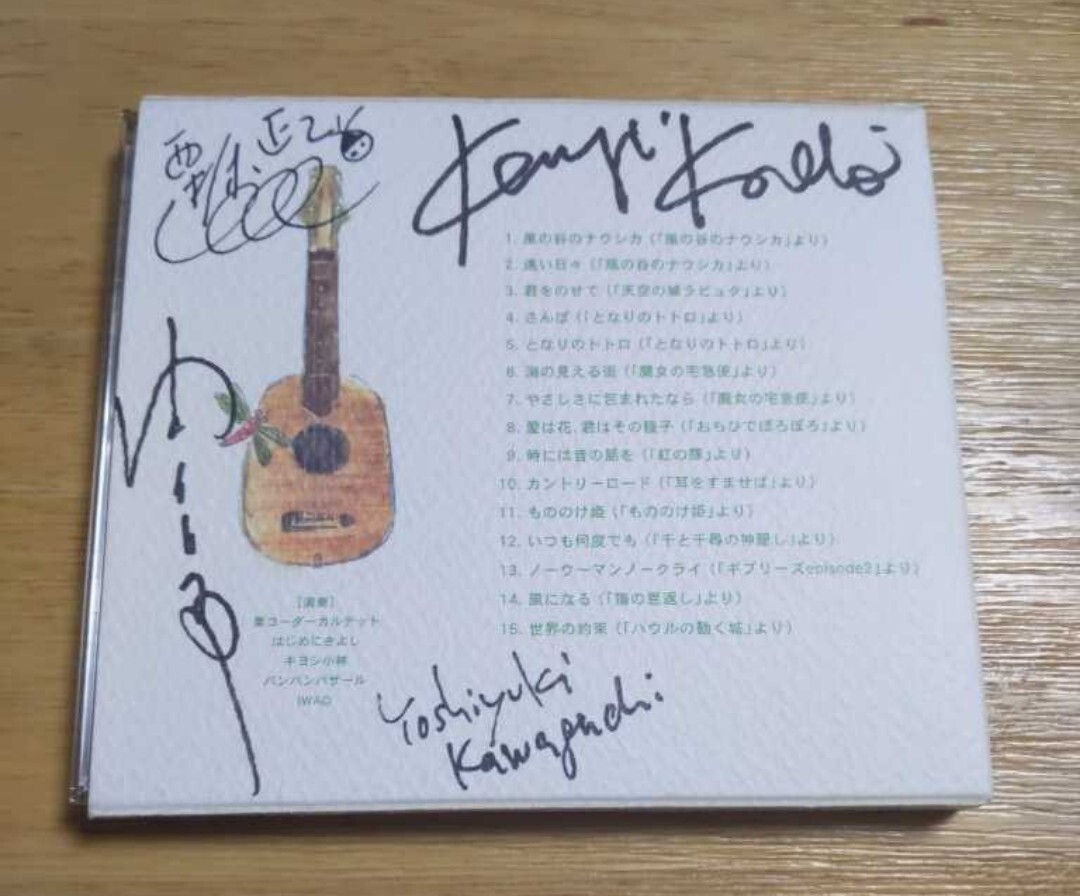 Kenji Kondo
1. 風の谷のナウシカ (「風の谷のナウシカ」より)
2. 遠い日々 (「風の谷のナウシカ」より)
3. 君をのせて (「天空の城ラピュタ」より)
4. さんぽ (「となりのトトロ」より)
5. となりのトトロ (「となりのトトロ」より)
6. 海の見える街 (「魔女の宅急便」より)
7. やさしさに包まれたなら (「魔女の宅急便」より)
8. 愛は花、君はその種子 (「おもひでぽろぽろ」より)
9. 時には昔の話を (「紅の豚」より)
10. カントリーロード (「耳をすませば」より)
11. もののけ姫 (「もののけ姫」より)
12. いつも何度でも (「千と千尋の神隠し」より)
13. ノーウーマンノークライ (「ギブリーズepisode2」より)
14. 風になる (「猫の恩返し」より)
15. 世界の約束 (「ハウルの動く城」より)
[演奏]
栗コーダーカルテット
はじめにきよし
キヨシ小林
バンバンバザール
IWAO
Yoshiyuki
Kawaguchi